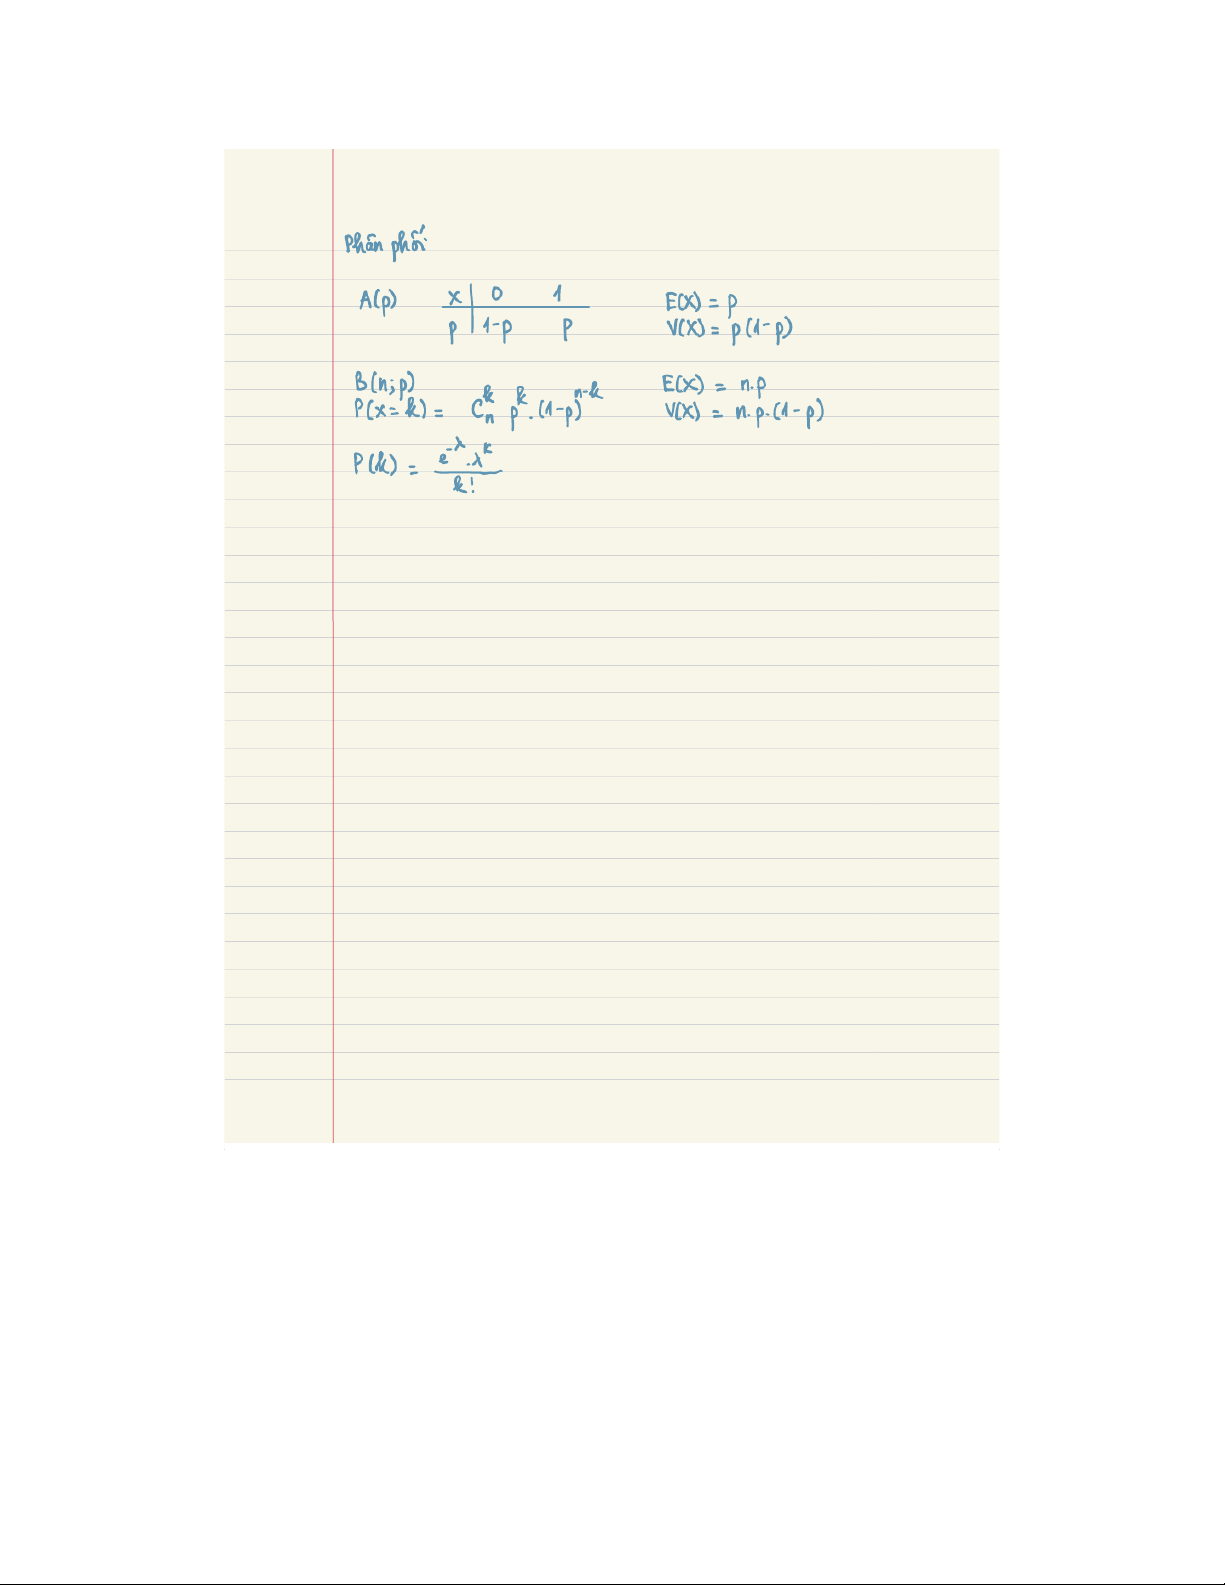 Phân phối
A(p) x | 0 1 E(X) = p
p | 1-p p V(X) = p(1-p)
B(n;p) E(X) = n.p
P(x=k) = C_n^k p^k.(1-p)^{n-k} V(X) = n.p.(1-p)
P(k) = \frac{e^{-λ}.λ^k}{k!}